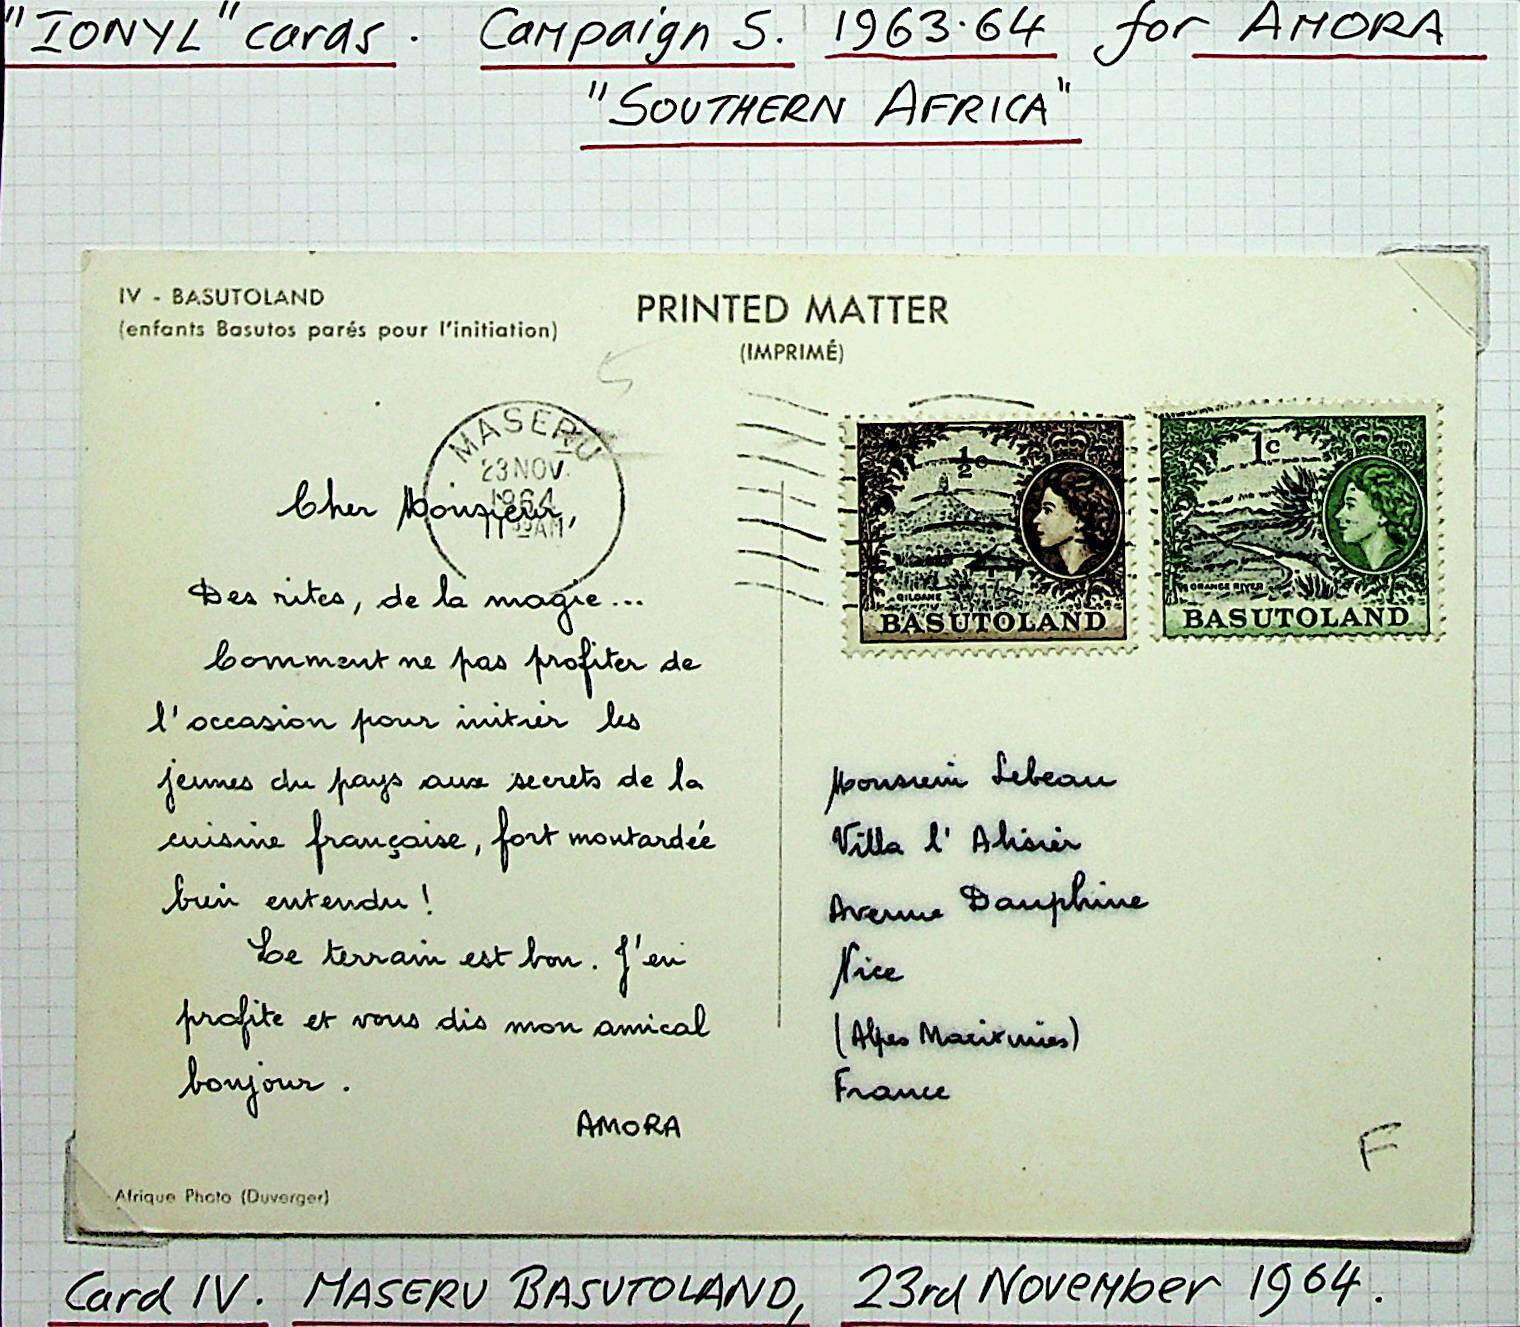 "IONYL" cards. Campaign 5. 1963-64 for AMORA
"SOUTHERN AFRICA"
IV - BASUTOLAND
(enfants Basutos parés pour l'initiation)
PRINTED MATTER
(IMPRIMÉ)
MASERU
23 NOV.
1964
11 AM
½c
QILOANE
BASUTOLAND
1c
ORANGE RIVER
BASUTOLAND
Cher Monsieur,
Des rites, de la magie...
Comment ne pas profiter de
l'occasion pour initier les
jeunes du pays aux secrets de la
cuisine française, fort moutardée
bien entendu !
Le terrain est bon. J'en
profite et vous dis mon amical
bonjour.
AMORA
Afrique Photo (Duverger)
Monsieur Lebeau
Villa l'Alisier
Avenue Dauphine
Nice
(Alpes Maritimes)
France
F
Card IV. MASERU BASUTOLAND, 23rd November 1964.